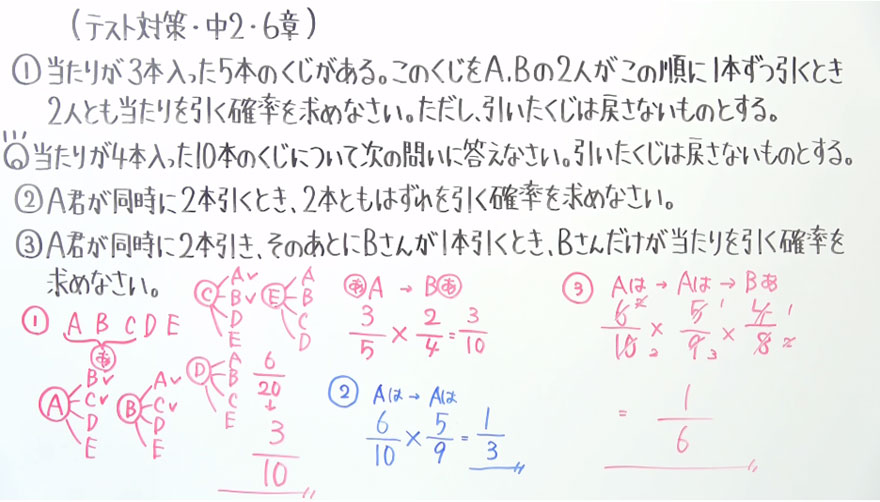 (テスト対策・中2・6章)
①当たりが3本入った5本のくじがある。このくじをA.Bの2人がこの順に1本ずつ引くとき
2人とも当たりを引く確率を求めなさい。ただし、引いたくじは戻さないものとする。
当たりが4本入った10本のくじについて次の問いに答えなさい。引いたくじは戻さないものとする。
②A君が同時に2本引くとき、2本ともはずれを引く確率を求めなさい。
③A君が同時に2本引き、そのあとにBさんが1本引くとき、Bさんだけが当たりを引く確率を
求めなさい。
① A B C D E
あ
A B✓ C✓ D E
B A✓ C✓ D E
C A✓ B✓ D E
D A B C E
E A B C D
6/20
↓
3/10
あA → Bあ
3/5 × 2/4 = 3/10
② Aは → Aは
6/10 × 5/9 = 1/3
③ Aは → Aは → Bあ
6/10 × 5/9 × 4/8
2 1 1
2 3 2
= 1/6